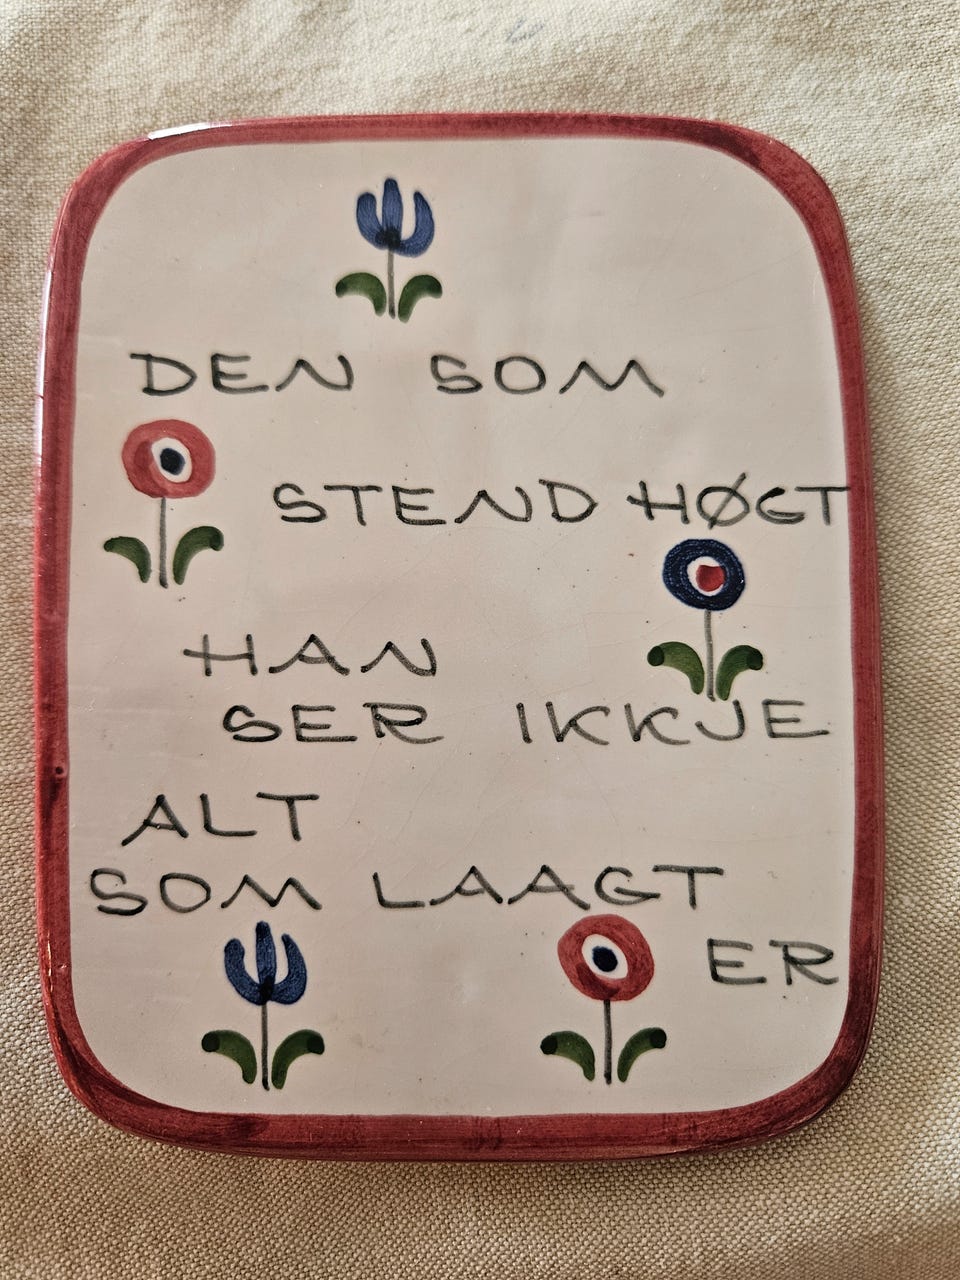 DEN SOM
STEND HØGT
HAN
SER IKKJE
ALT
SOM LAAGT
ER